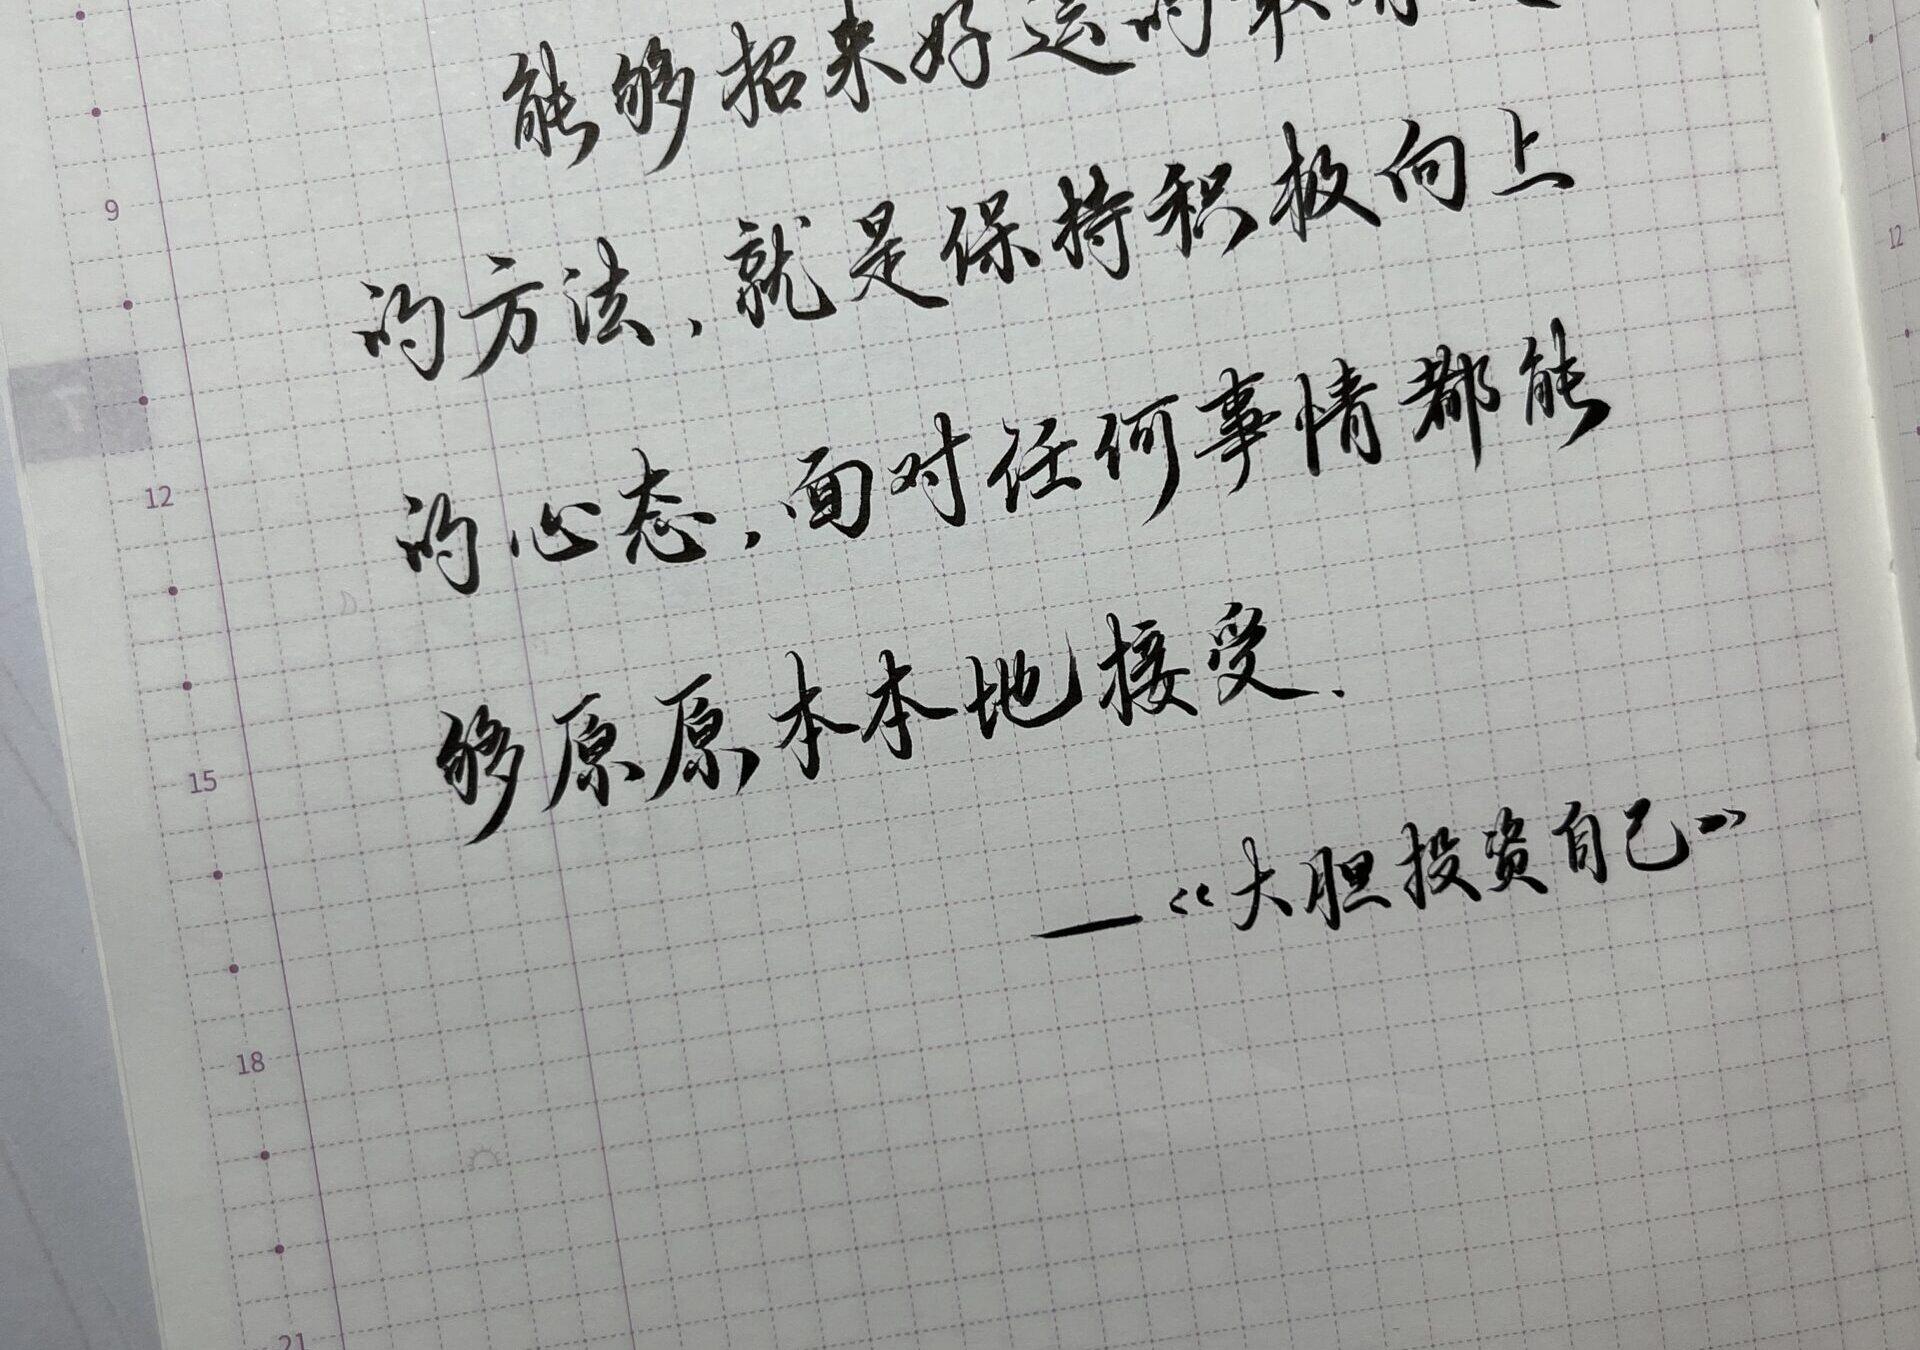 能够招来好运的最
的方法，就是保持积极向上
的心态，面对任何事情都能
够原原本本地接受.
—《大胆投资自己》
9
12
15
18
21
12